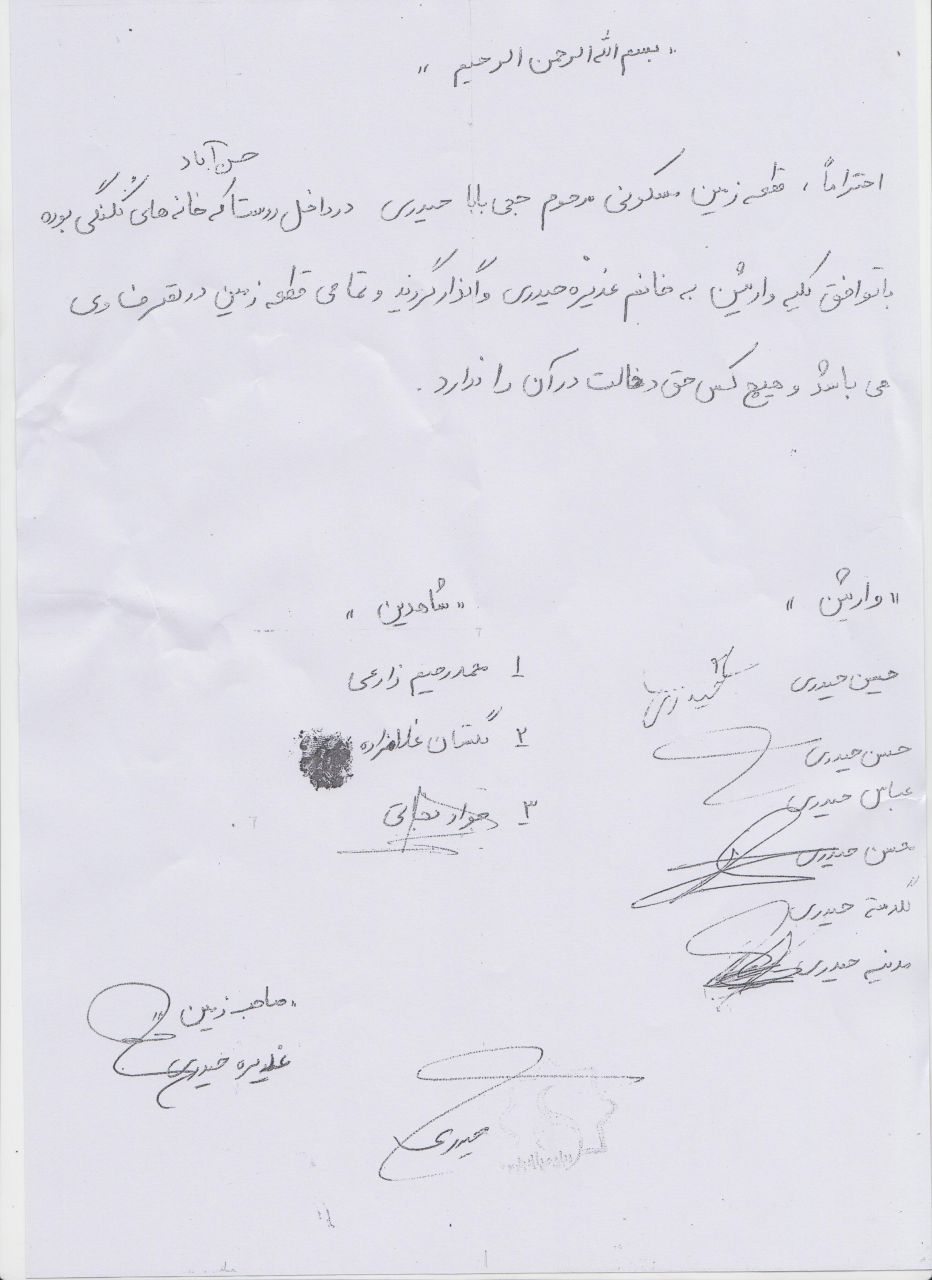 "بسم الله الرحمن الرحیم"
احتراماً، قطعه زمین مسکونی مرحوم حجی بابا حیدری در داخل روستا حسن آباد که خانه های کلنگی بوده
با توافق کلیه وارثین به خانم غدیره حیدری واگذار گردید و تمامی قطعه زمین در تصرف وی
می باشد و هیچ کس حق دخالت در آن را ندارد.
"وارثین" "شاهدین"
حسین حیدری
حسن حیدری
عباس حیدری
محسن حیدری
گلدسته حیدری
مدینه حیدری
۱ محمد رحیم زارعی
۲ گلستان غلامزاده
۳ جواد
"صاحب زمین"
غدیره حیدری
حیدری